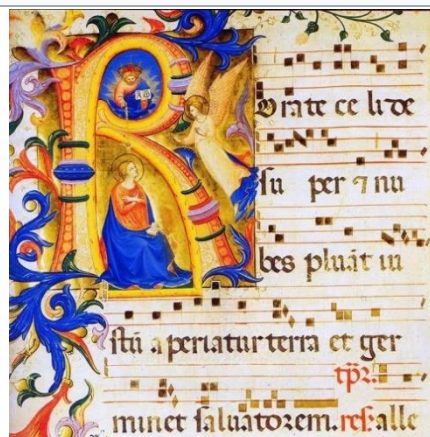 Rorate celi de
su per ⁊ nu
bes pluāt iu
stū aperiatur terra et ger
tp̄r.
minet saluatorem. res. alle